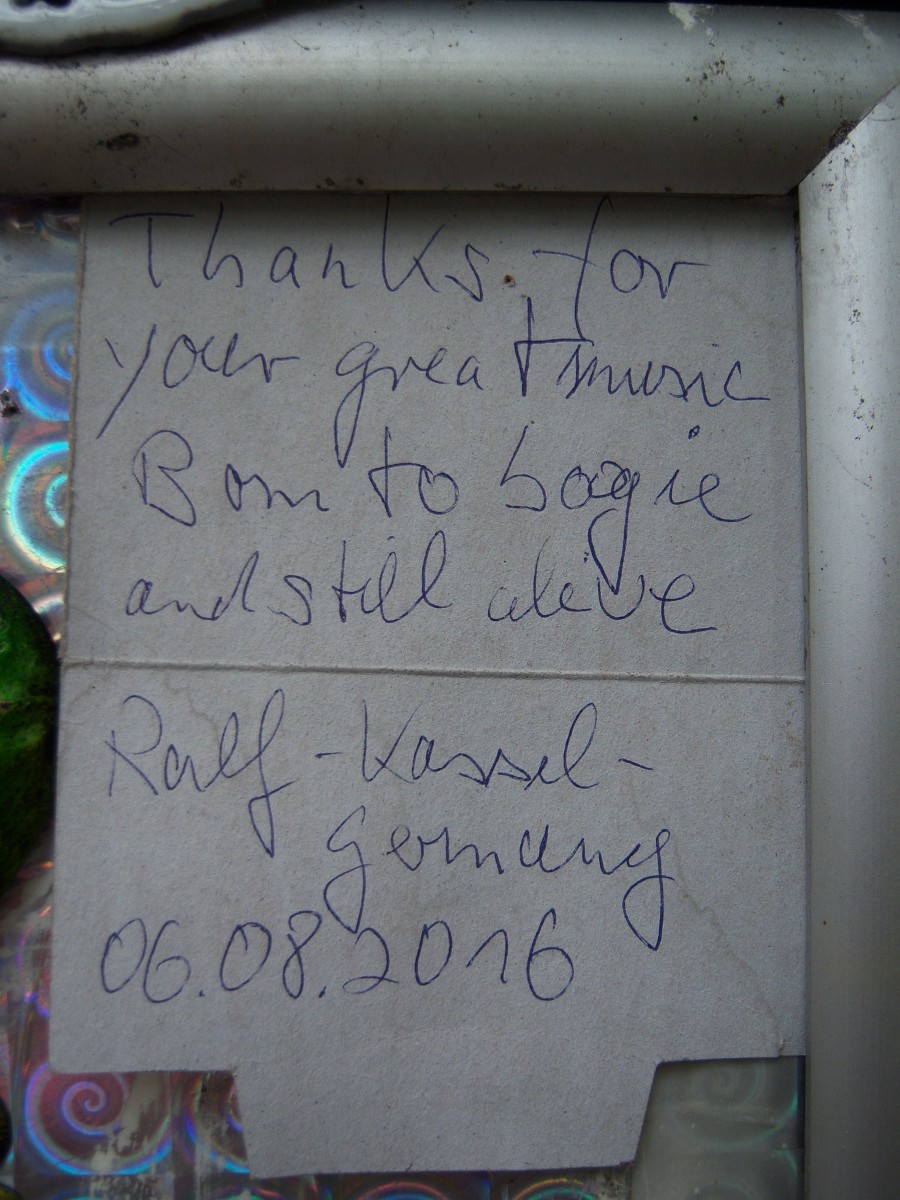 Thanks for
your great music
Born to boogie
and still alive
Ralf - Kassel -
Germany
06.08.2016